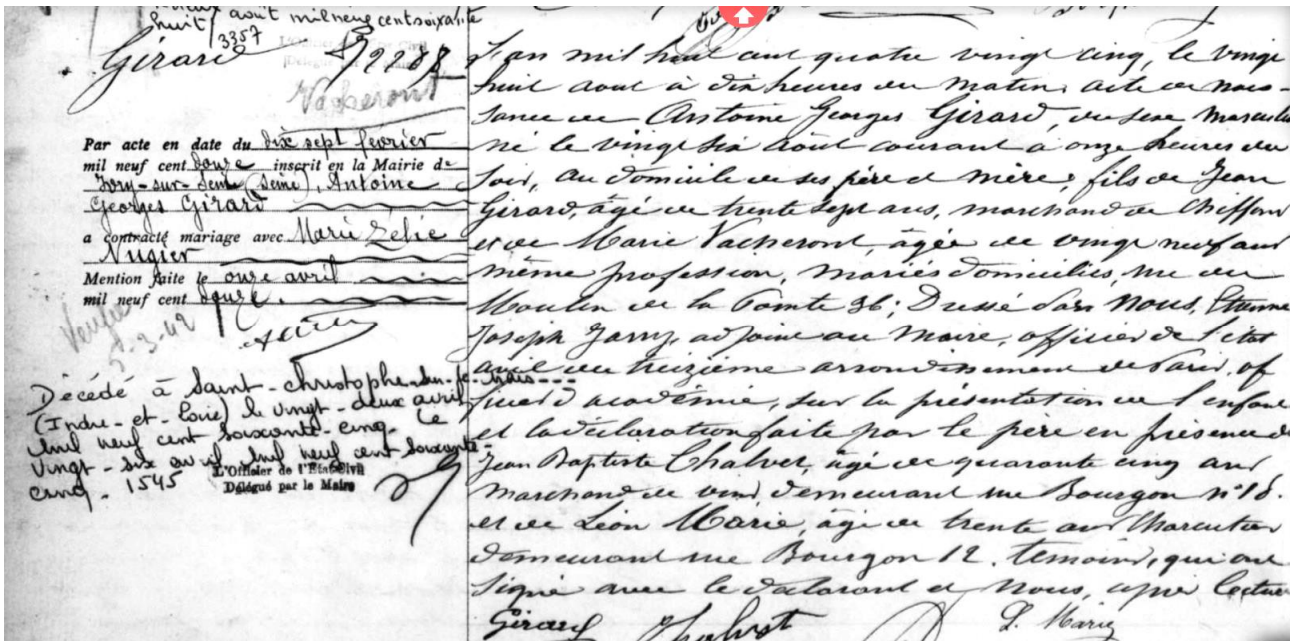 huit août mil neuf cent soixante
3357
L'Officier de l'Etat Civil
Délégué par le Maire
Girard
2288
Vacheront
Par acte en date du dix sept février
mil neuf cent douze inscrit en la Mairie de
Ivry-sur-Seine (Seine), Antoine
Georges Girard
a contracté mariage avec Marie Zélie
Nugier
Mention faite le onze avril
mil neuf cent douze.
3-42
Décédé à Saint-Christophe-sur-le-Nais---
(Indre-et-Loire) le vingt-deux avril
mil neuf cent soixante-cinq. Le
vingt-six avril mil neuf cent soixante-
cinq. 1545
L'Officier de l'Etat Civil
Délégué par le Maire
L'an mil huit cent quatre vingt cinq, le vingt
huit aout à dix heures du matin, acte de nais-
sance de Antoine Georges Girard, du sexe masculin
né le vingt six août courant à onze heures du
soir, au domicile de ses père et mère; fils de Jean
Girard, âgé de trente sept ans, marchand de chiffons
et de Marie Vacheront, âgée de vingt neuf ans
même profession, mariés domiciliés, rue du
Moulin de la Pointe 36; Dressé par Nous, Etienne
Joseph Jarry, adjoint au Maire, officier de l'état
civil du treizième arrondissement de Paris, of
ficier d'académie, sur la présentation de l'enfant
et la déclaration faite par le père en présence de
Jean Baptiste Chalvet, âgé de quarante cinq ans
marchand de vins demeurant rue Bourgon n° 18.
et de Léon Marie, âgé de trente ans charcutier
demeurant rue Bourgon 12. témoins, qui ont
signé avec le déclarant et Nous, après lecture
Girard Chalvet L. Marie